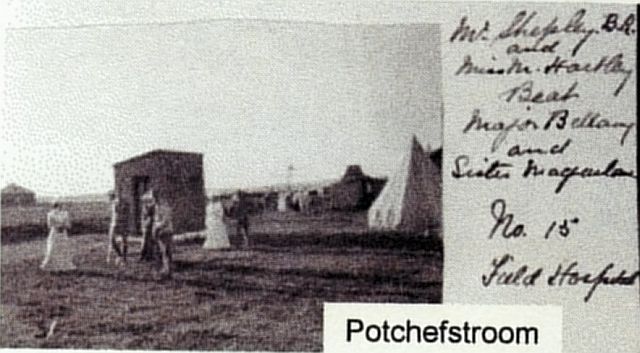 Mr. Shepley. B.R.
and
Miss M. Hartley
Beat
Major Bellamy
and
Sister Macfarlane
No. 15
Field Hospital
Potchefstroom